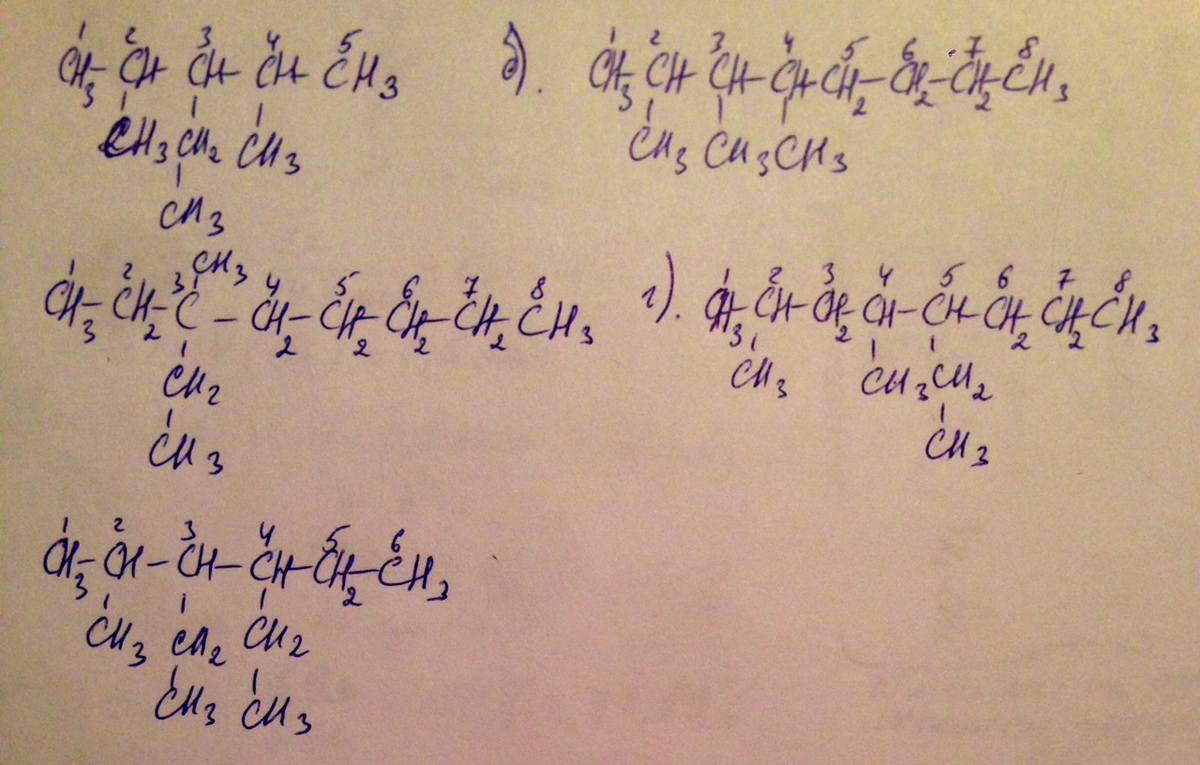 1 2 3 4 5
CH3-CH-CH-CH-CH3
CH3 CH2 CH3
CH3
б). 1 2 3 4 5 6 7 8
CH3-CH-CH-CH-CH2-CH2-CH2-CH3
CH3 CH3 CH3
CH3
1 2 3 4 5 6 7 8
CH3-CH2-C-CH2-CH2-CH2-CH2-CH3
CH2
CH3
г). 1 2 3 4 5 6 7 8
CH3-CH-CH2-CH-CH-CH2-CH2-CH3
CH3 CH3 CH2
CH3
1 2 3 4 5 6
CH3-CH-CH-CH-CH2-CH3
CH3 CH2 CH2
CH3 CH3